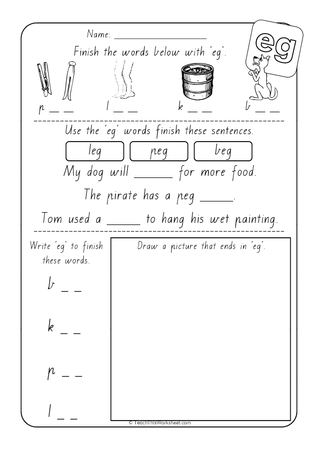 Name: ____________________
eg
Finish the words below with 'eg'.
p __ __ l __ __ k __ __ b __ __
Use the 'eg' words finish these sentences.
leg peg beg
My dog will ______ for more food.
The pirate has a peg _____.
Tom used a _____ to hang his wet painting.
Write 'eg' to finish
these words.
Draw a picture that ends in 'eg'.
b __ __
k __ __
p __ __
l __ __
© TeachThisWorksheet.com